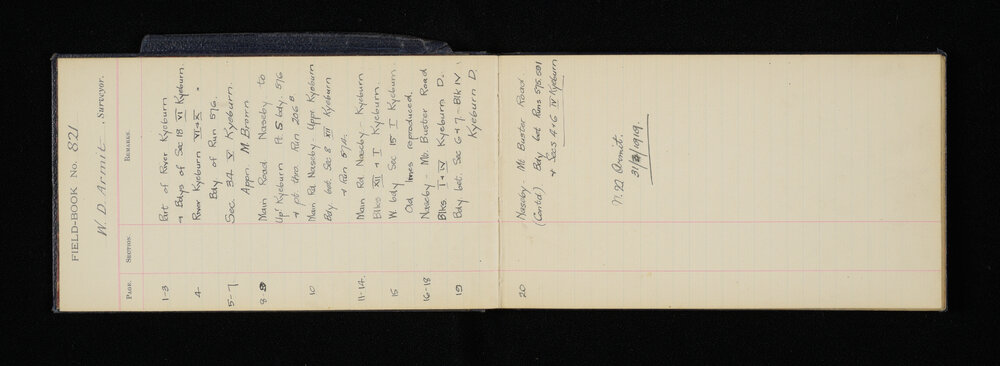 FIELD-BOOK No. 821
W. D. Armit, Surveyor.
PAGE. SECTION. REMARKS.
1-3 Part of River Kyeburn
+ Bdys of Sec 18 VI Kyeburn.
4- River Kyeburn VI + X "
Bdy of Run 576.
5-7 Sec. 34. V. Kyeburn.
Appn. M. Brown
8-9 Main Road Naseby to
Upr Kyeburn Pt. S bdy. 576
+ pt. thro. Run 206 B.
10 Main Rd. Naseby - Uppr. Kyeburn
Bdy. bet. Sec 8 XII Kyeburn
+ Run 574.
11-14. Main Rd. Naseby - Kyeburn
Blks XII + I Kyeburn.
15 W. bdy Sec 15 I Kyeburn.
Old lines reproduced.
16-18 Naseby - Mt. Buster Road
Blks I + IV Kyeburn D.
19 Bdy bet. Sec 6 + 7 - Blk IV
Kyeburn D.
20 Naseby - Mt Buster Road
(Contd) Bdy bet Runs 575, 581
+ Secs 4 + 6 IV Kyeburn
W. D. Armit.
1919.